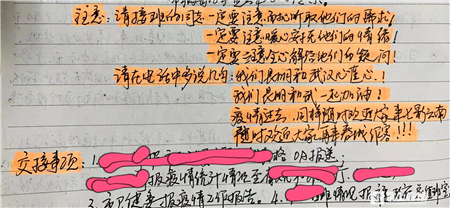 注意：请接班的同志一定要注意耐心听取他们的诉求！
一定要注意暖心安抚他们的情绪！
一定要注意全心解答他们的疑问！
请在电话中多说几句：我们昆明和武汉心连心！
我们昆明和武汉一起加油！
疫情过去，同样随时欢迎大家来七彩云南
随时欢迎大家来春城作客！！！
交接事项：1.
OA报送；
报疫情统计情况至
3. 卫健委报疫情工作报告。4.